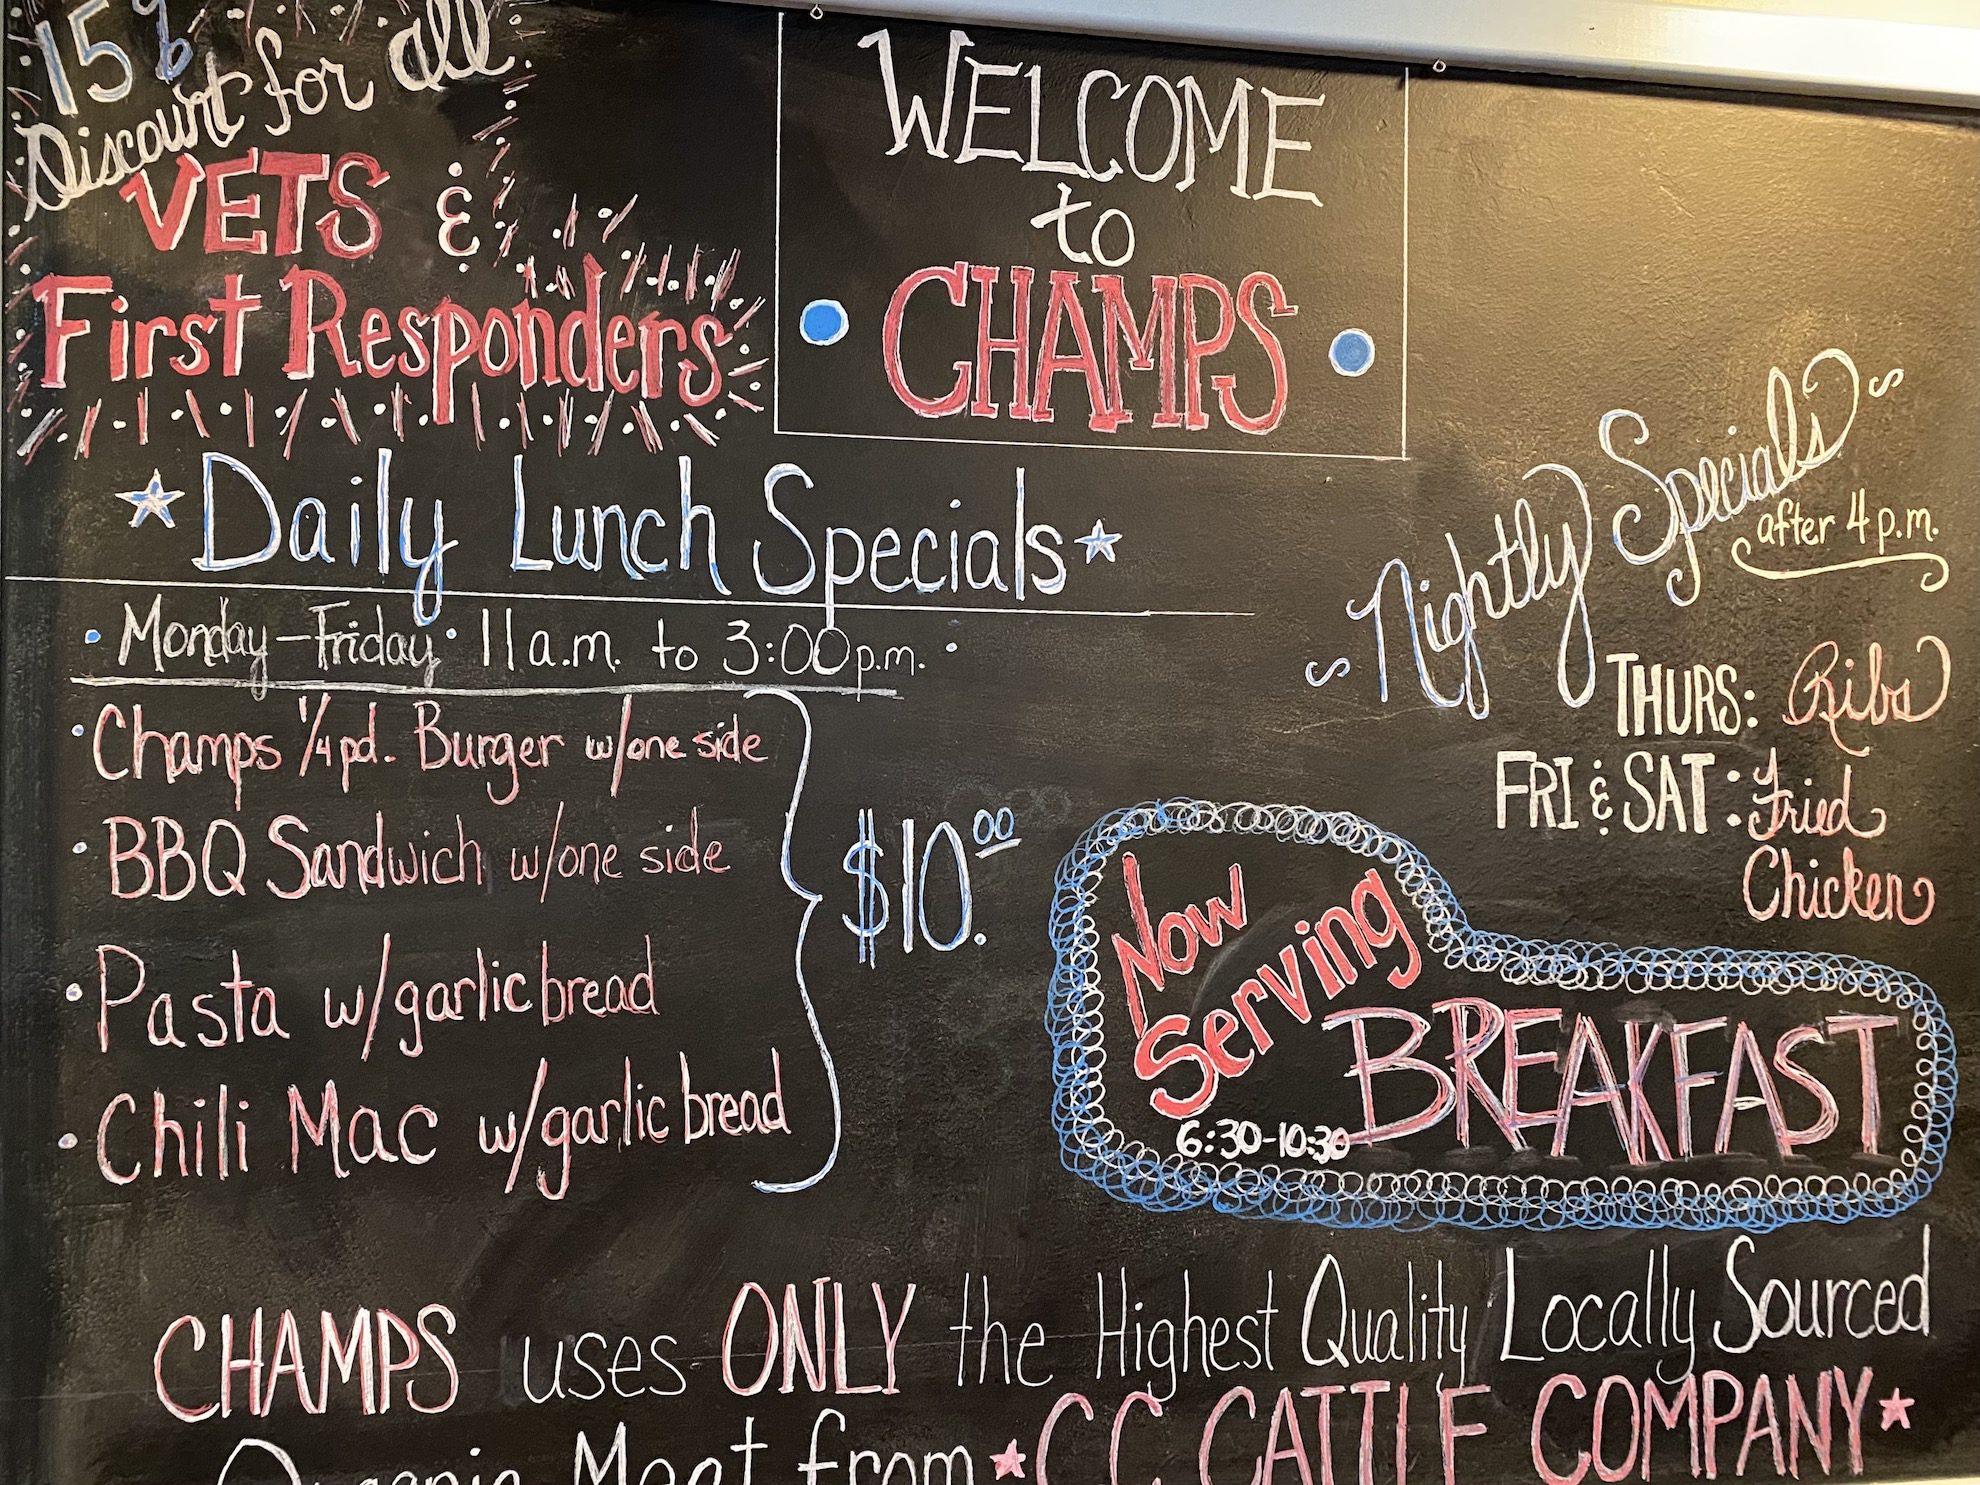 15%
Discount for all
VETS &
First Responders
WELCOME
to
CHAMPS
Daily Lunch Specials
Monday-Friday 11a.m. to 3:00p.m.
Champs 1/4 pd. Burger w/one side
BBQ Sandwich w/one side
Pasta w/garlic bread
Chili Mac w/garlic bread
$10.00
Nightly Specials
after 4p.m.
THURS: Ribs
FRI & SAT: Fried
Chicken
Now
Serving
BREAKFAST
6:30-10:30
CHAMPS uses ONLY the Highest Quality Locally Sourced
Organic Meat from CC CATTLE COMPANY